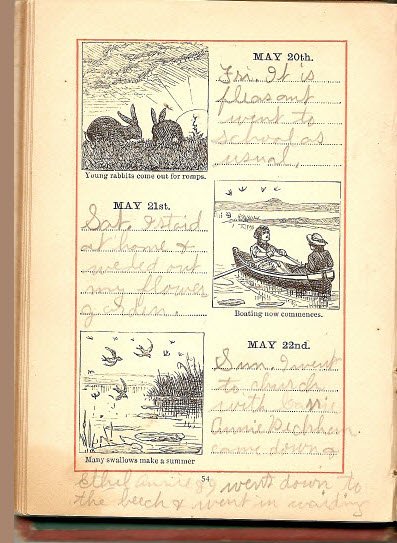 MAY 20th.
Fri. It is
pleasant
went to
school as
usual.
Young rabbits come out for romps.
MAY 21st.
Sat. I staid
at home &
weeded out
my flower
garden.
Boating now commences.
MAY 22nd.
Sun. I went
to church
with
Annie
came down &
Many swallows make a summer
54
Ethel Annie & I went down to
the beech & went in waiding